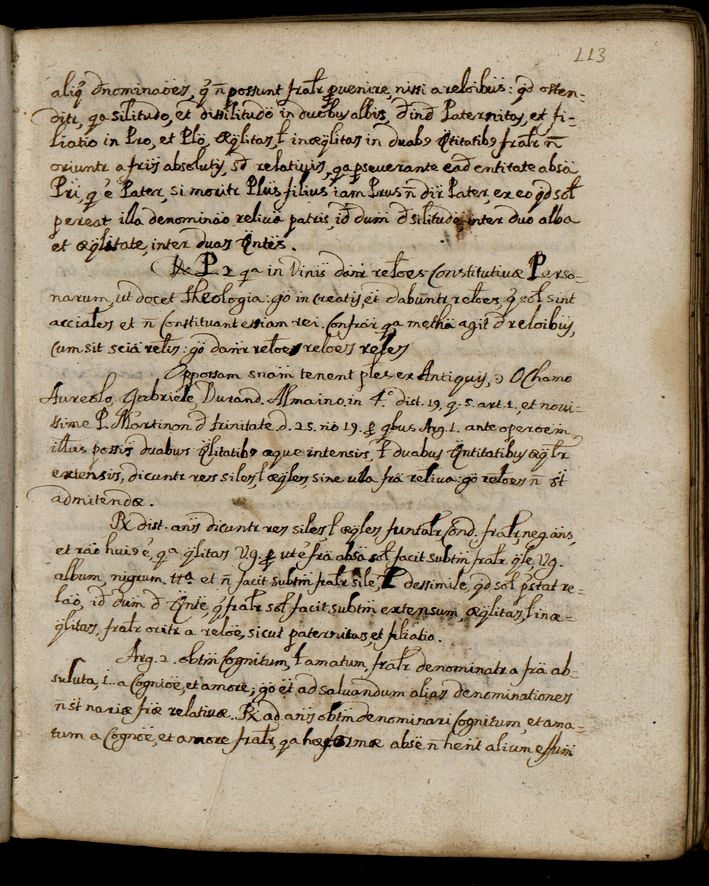 113
aliq̃ dnominaões, q̃ ñ possunt fralr ꝓvenire, nissi a reloibus: qd osten-
ditr, qa silitudo, et dissilitudo in duobus albis, dind Paternitas, et fi-
liatio in Pro, et Plo, æqlitas, l inæqlitas in duabs Qtitatibs fralr ñ
oriuntr a friis absolutis, sd relativis, qa pseverante eâd entitate absâ
Pri, q̃ ẽ Pater, si moritr Plus filius iam Prus ñ dir Pater, ex eo qd sol
pereat illa denominao reliva patris, id dum d silitude inter duo alba
et æqlitate, inter duas Qntes.
P. 2 qa in Divinis danr reloes Constitutivæ Perso-
narum, ut docet theologia: go in creatis, et dabuntr reloes, q̃ sol sint
acciales et ñ Constituant essiam rei. Confrar qa metha agit d reloibus,
cum sit scia relis: go danr reloes reloes reles
Oppossam snam tenent ples ex Antiquis, Ochamo
Aureolo, Gabriele, Durand. Almaino. in 4.º dist. 19, q. 5. art. 1., et novi-
ssime P. Martinon d trinitate d. 25. nio 19. ꝑ qbus Arg. 1. ante operoem
illus possis duabus Qlitatibs æque intensis, l duabus Qntitatibus æqlr
extensis, dicuntr res siles, l æqles, sine ulla frâ reliva: go reloes ñ st
admitendæ.
Rx dist. anis dicuntr res siles, l æqles funtalr, Cond. fralr, neg. ans,
et râo huis ẽ, qa qlitas Vg. ꝑ ut ẽ frâ absâ sol facit subtm fralr qle, Vg.
album, nigrum. ttª. et ñ facit subtm fralr sile, l dessimile, qd sol pstat re-
lao, id dum d Qnte, q̃ fralr sol facit subtm extensum, æqlitas, l inæ-
qlitas, fralr oritr a reloe, sicut paternitas, et filiatio.
Arg. 2. obtm Cognitum, l amatum, fralr denominatr a frâ ab-
suluta, i.. a Cognioe, et amore; go et ad salvandum alias denominationes
ñ st nariæ friæ relativæ. Rx ad anis obtm denominari Cognitum, et ama-
tum a Cognoe, et amore fralr, qa hæ formæ absê ñ hent alium effum